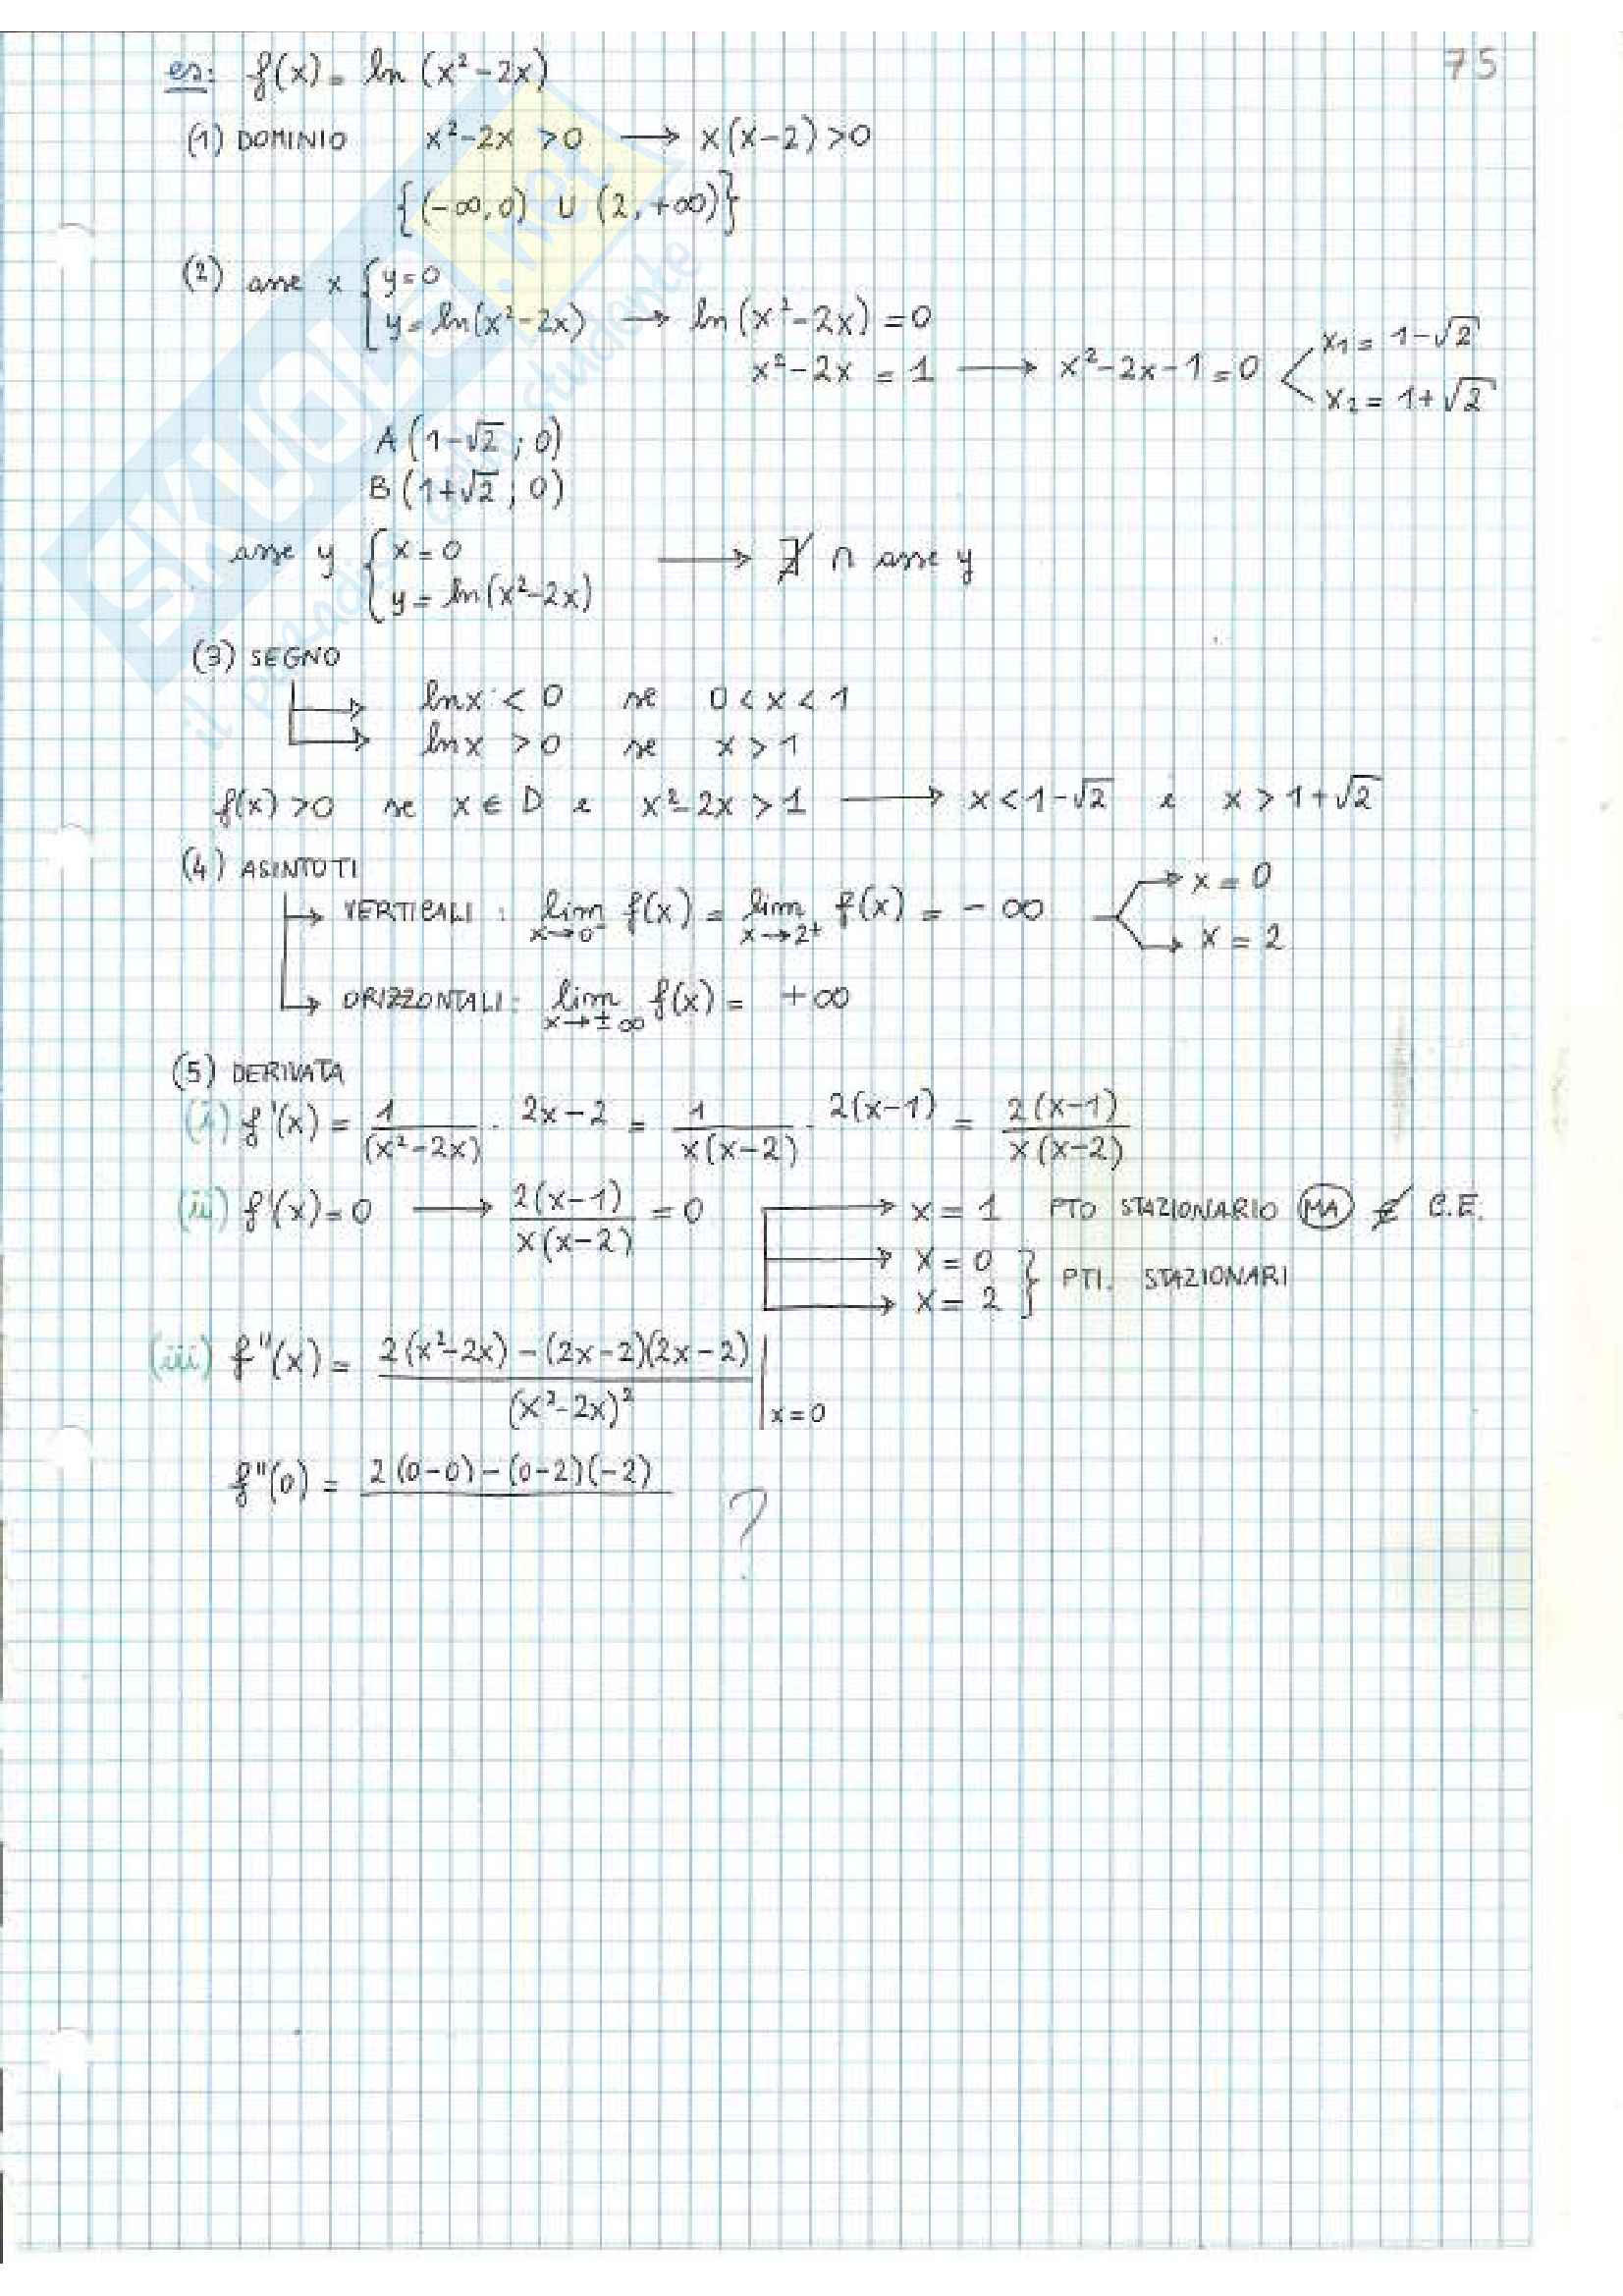 75
es: f(x) = ln (x² - 2x)
(1) DOMINIO x² - 2x > 0 → x(x-2) > 0
{(-∞, 0) ∪ (2, +∞)}
(2) asse x { y = 0
y = ln(x² - 2x) → ln(x² - 2x) = 0
x² - 2x = 1 → x² - 2x - 1 = 0 < x₁ = 1-√2
x₂ = 1+√2
A (1-√2 ; 0)
B (1+√2 ; 0)
asse y { x = 0 → ∄ ∩ asse y
y = ln(x² - 2x)
(3) SEGNO
→ ln x < 0 se 0 < x < 1
→ ln x > 0 se x > 1
f(x) > 0 se x ∈ D e x² - 2x > 1 → x < 1-√2 e x > 1+√2
(4) ASINTOTI
→ VERTICALI : lim x→0⁻ f(x) = lim x→2⁺ f(x) = -∞ → x = 0
→ x = 2
→ ORIZZONTALI : lim x→±∞ f(x) = +∞
(5) DERIVATA
(i) f'(x) = 1/(x² - 2x) · 2x - 2 = 1/x(x-2) · 2(x-1) = 2(x-1)/x(x-2)
(ii) f'(x) = 0 → 2(x-1)/x(x-2) = 0 → x = 1 PTO STAZIONARIO MA ∉ C.E.
→ x = 0
→ x = 2 } PTI. STAZIONARI
(iii) f''(x) = 2(x² - 2x) - (2x-2)(2x-2)/(x² - 2x)² | x = 0
f''(0) = 2(0-0) - (0-2)(-2) ?
SKUOLA.net
il paradiso dello studente